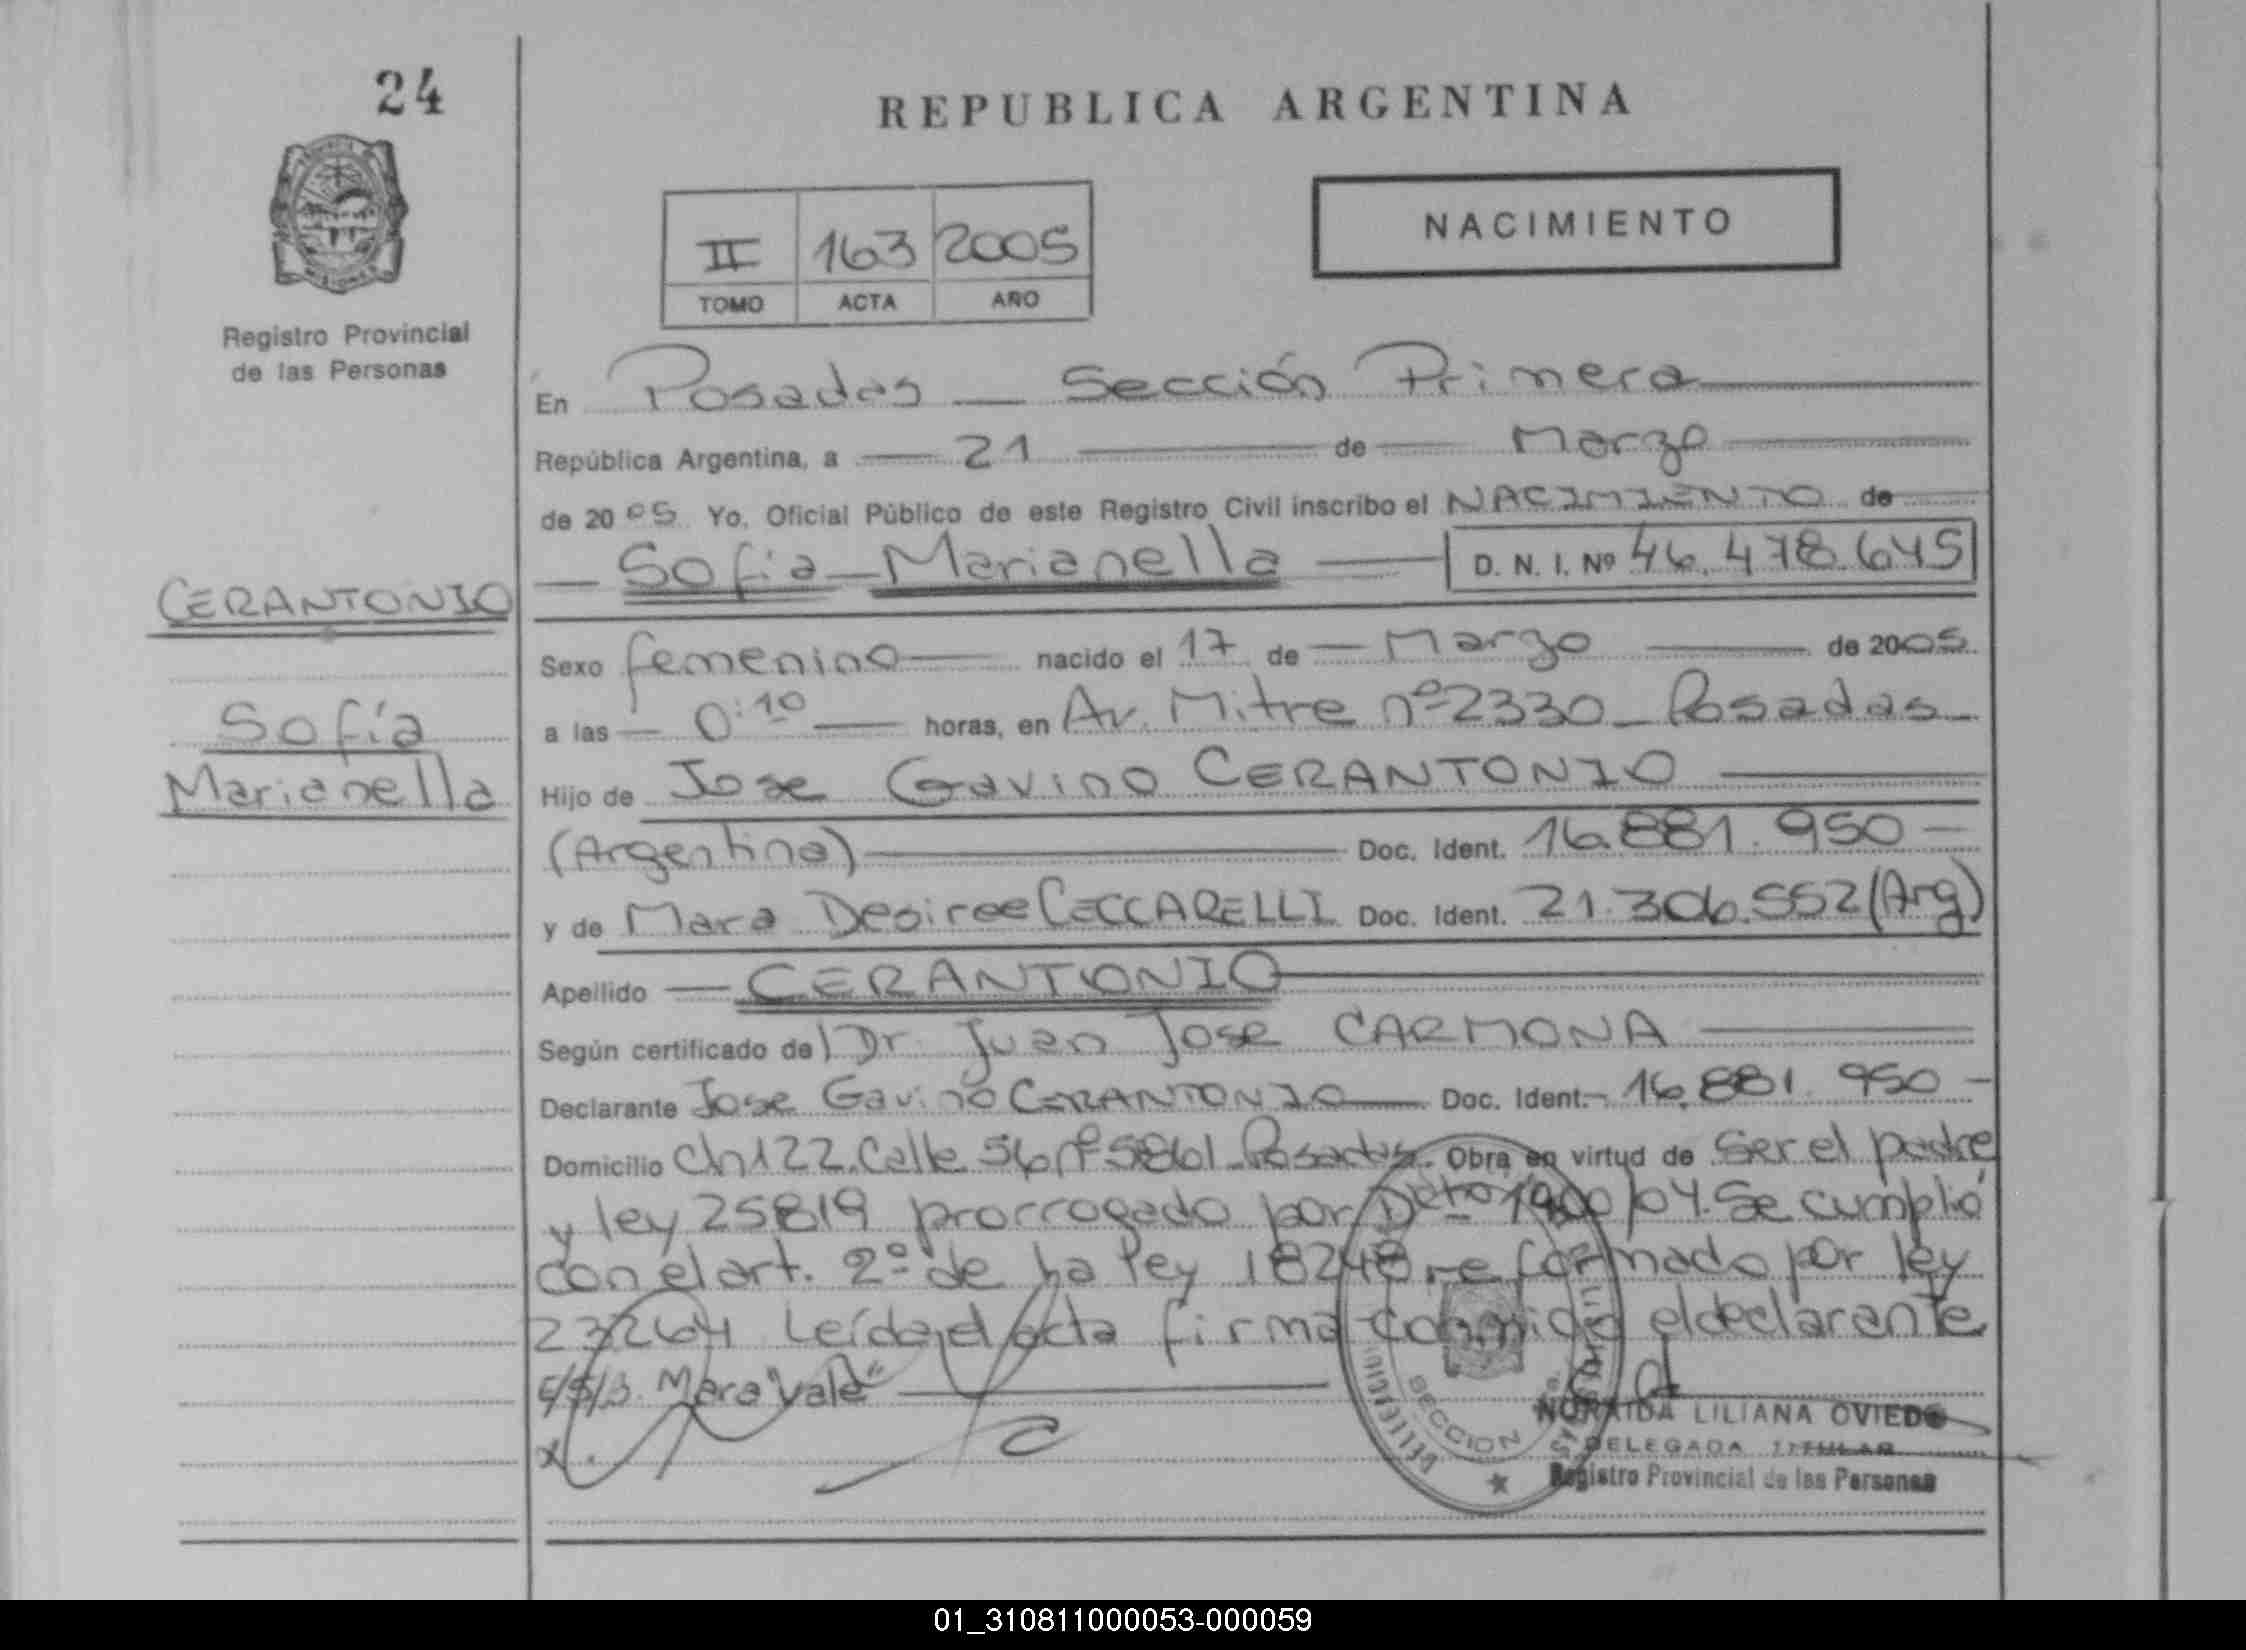 24
REPUBLICA ARGENTINA
MISIONES
Registro Provincial
de las Personas
II 163 2005
TOMO ACTA AÑO
NACIMIENTO
En Posadas — Sección Primera
República Argentina, a — 21 — de — Marzo
de 2005. Yo, Oficial Público de este Registro Civil inscribo el NACIMIENTO de
CERANTONIO
Sofía
Marianella
— Sofía — Marianella — D. N. I. Nº 46.478.645
Sexo femenino — nacido el 17 de — Marzo — de 2005.
a las — 0:10 — horas, en Av. Mitre nº 2330 - Posadas -
Hijo de Jose Gavino CERANTONIO —
(Argentina) — Doc. Ident. 16.881.950 —
y de Mara Desiree CECCARELLI Doc. Ident. 21.306.552 (Arg)
Apellido — CERANTONIO
Según certificado de Dr. Juan Jose CARMONA —
Declarante Jose Gavino CERANTONIO — Doc. Ident. - 16.881.950 —
Domicilio Ch 122. Calle 56 nº 5861 - Posadas. Obra en virtud de Ser el padre
y ley 25819 prorrogado por Dcto 1900/04. Se cumplió
con el art. 2º de la ley 18248 reformado por ley
23264 Leída el acta firma conmigo el declarante
E/S/B. Mara "vale" —
x.
SECCION
NORAIDA LILIANA OVIEDO
DELEGADA TITULAR
Registro Provincial de las Personas
01_310811000053-000059